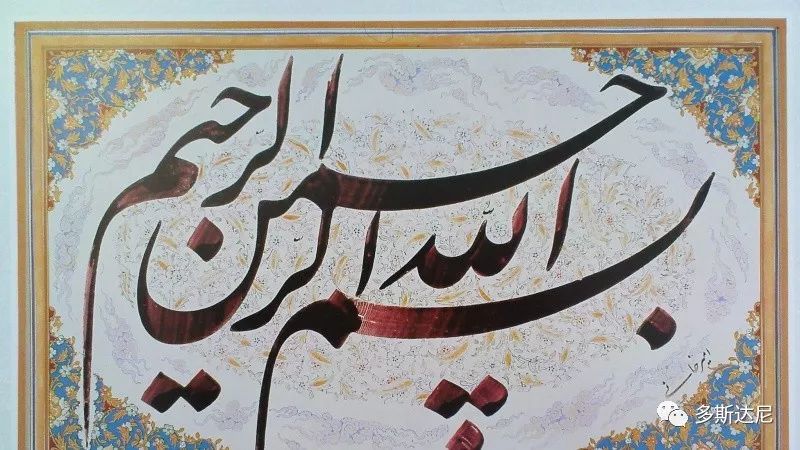 بسم الله الرحمن الرحيم
多斯达尼